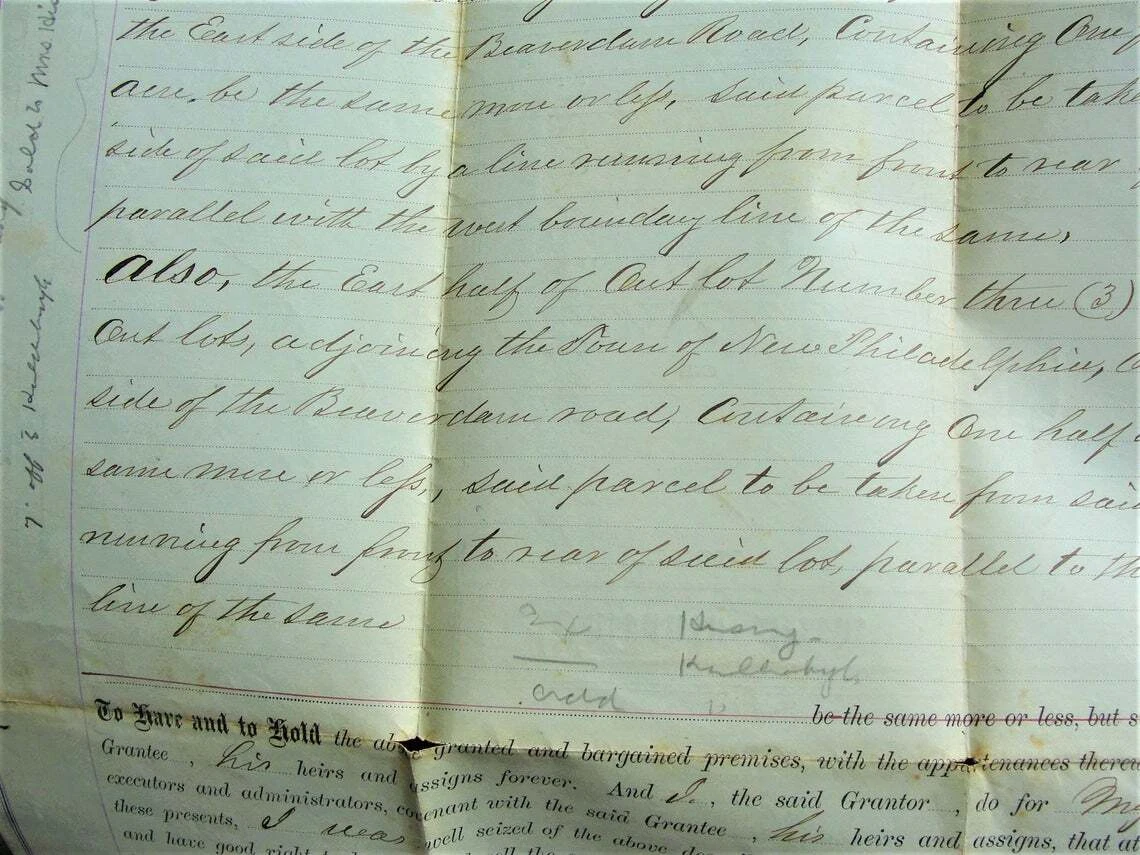 the East side of the Beaverdam Road, Containing One
acre, be the same more or less, said parcel to be take
side of said lot by a line running from front to rear
parallel with the west boundary line of the same,
also, the East half of Out lot Number three (3)
Out lots, adjoining the Town of New Philadelphia,
side of the Beaverdam road, Containing One half
same more or less, said parcel to be taken from said
running from front to rear of said lot, parallel to th
line of the same
add
be the same more or less, but s
To Have and to Hold the above granted and bargained premises, with the appurtenances thereu
Grantee, his heirs and assigns forever. And I, the said Grantor, do for My
executors and administrators, covenant with the said Grantee, his heirs and assigns, that at
these presents, I was well seized of the above
and have good right to